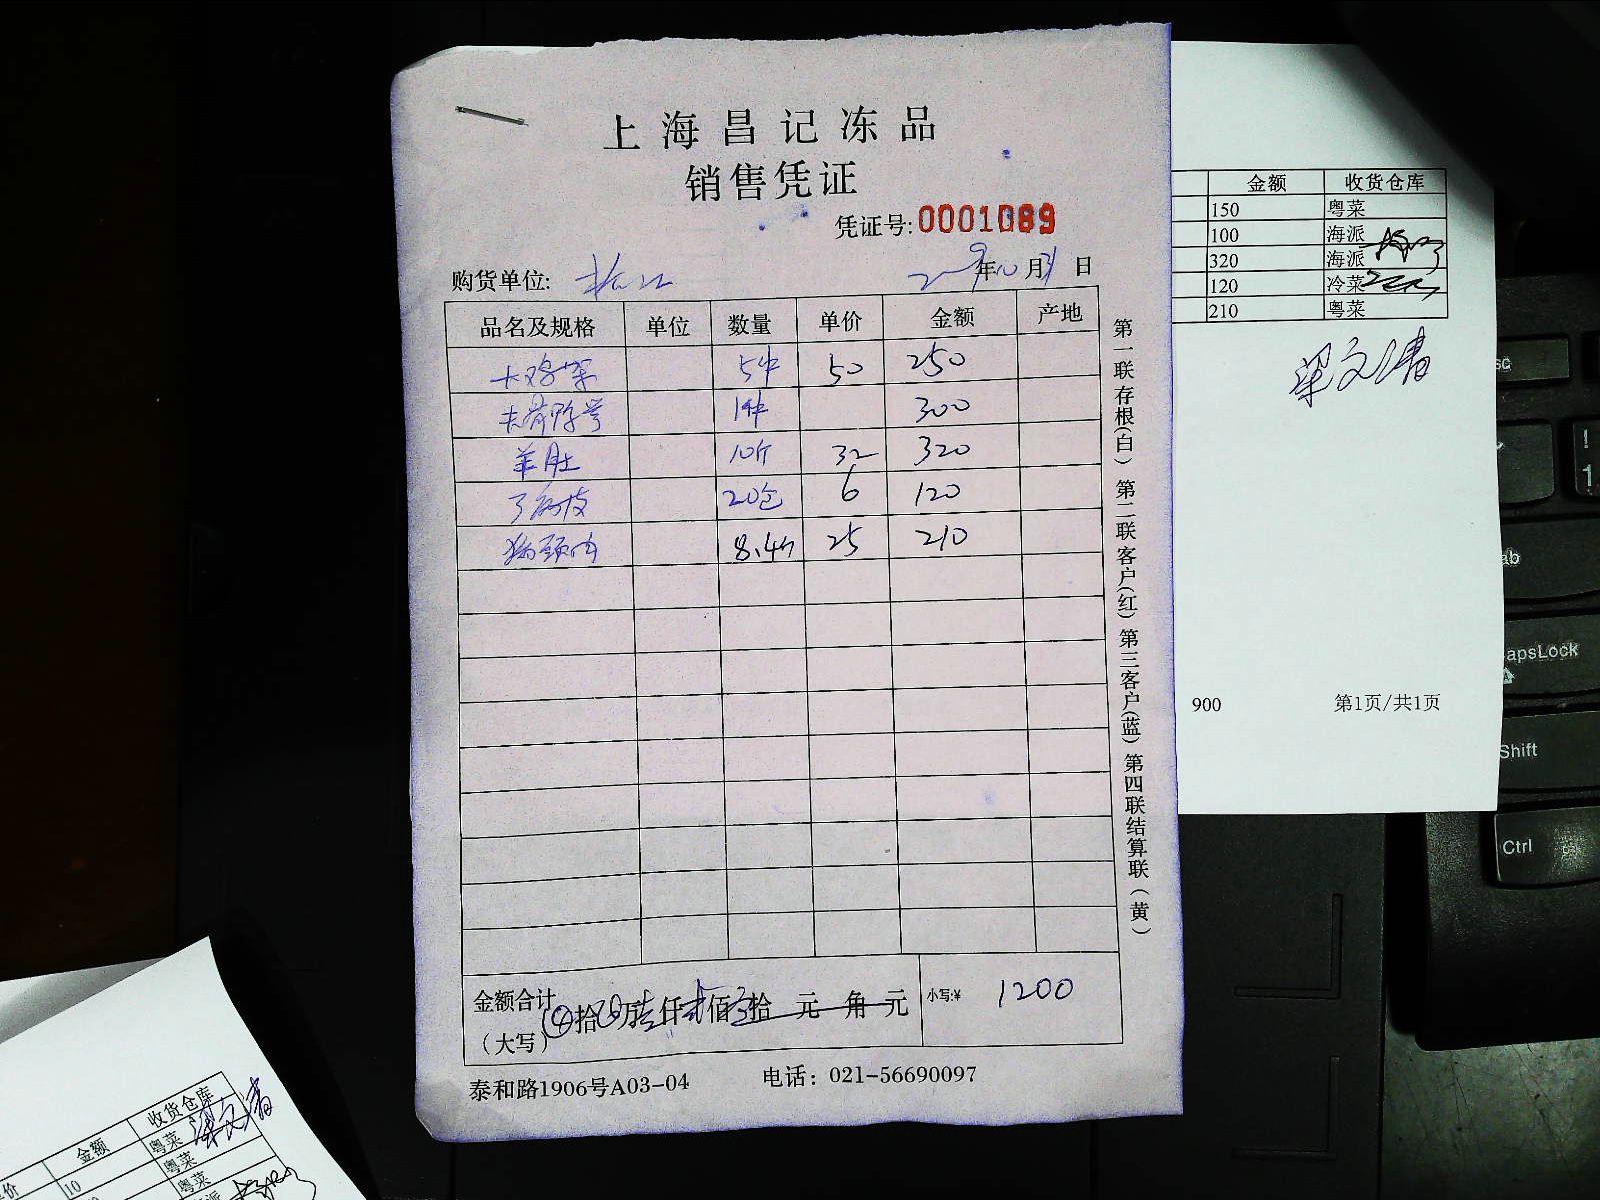 上海昌记冻品
销售凭证
凭证号:0001089
购货单位: 年10月31日
品名及规格 单位 数量 单价 金额 产地
5件 50 250
1件 300
羊肚 10斤 32 320
20包 6 120
猪颈肉 8.4斤 25 210
金额合计(大写) 拾 万 壹仟 贰佰 拾 元 角 元 小写:¥ 1200
泰和路1906号A03-04 电话：021-56690097
第一联存根(白) 第二联客户(红) 第三客户(蓝) 第四联结算联(黄)
金额 收货仓库
150 粤菜
100 海派
320 海派
120 冷菜
210 粤菜
梁文清
900 第1页/共1页
金额 收货仓库
粤菜
10 粤菜
粤菜
ab
apsLock
Shift
Ctrl